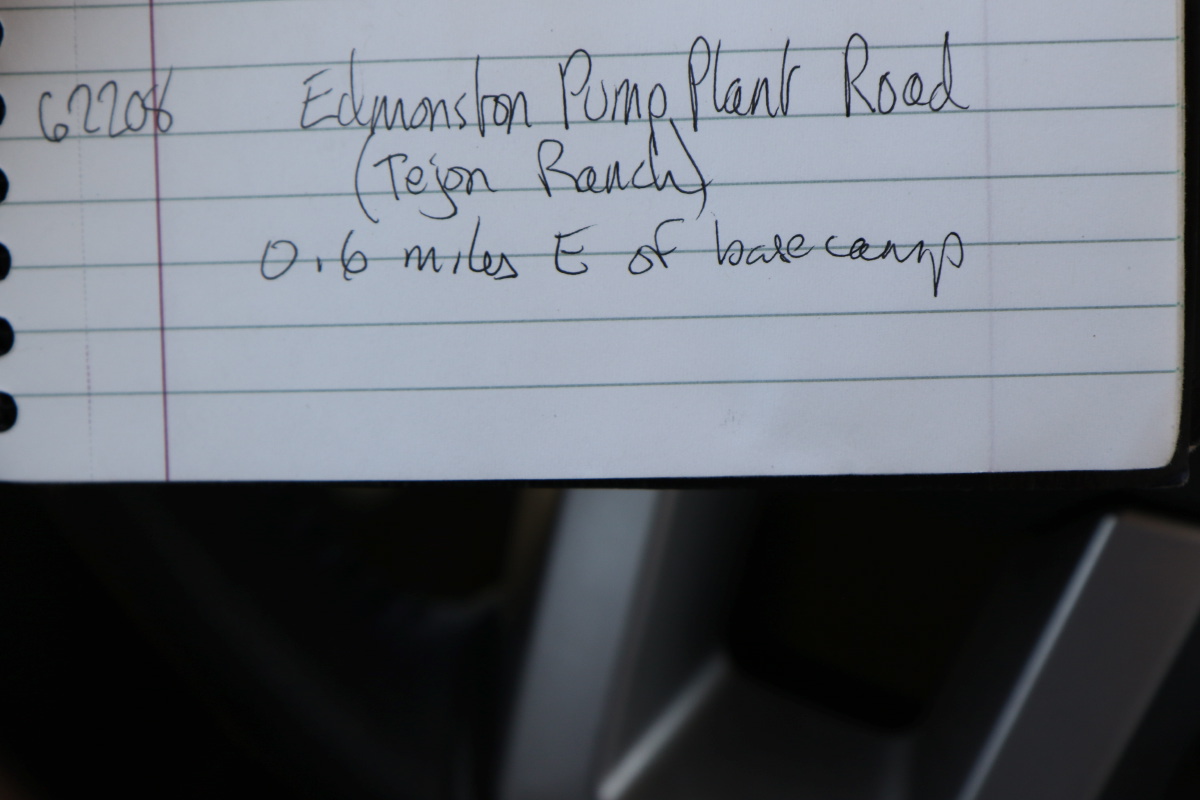 62208 Edmonston Pump Plant Road
(Tejon Ranch)
0.6 miles E of basecamp